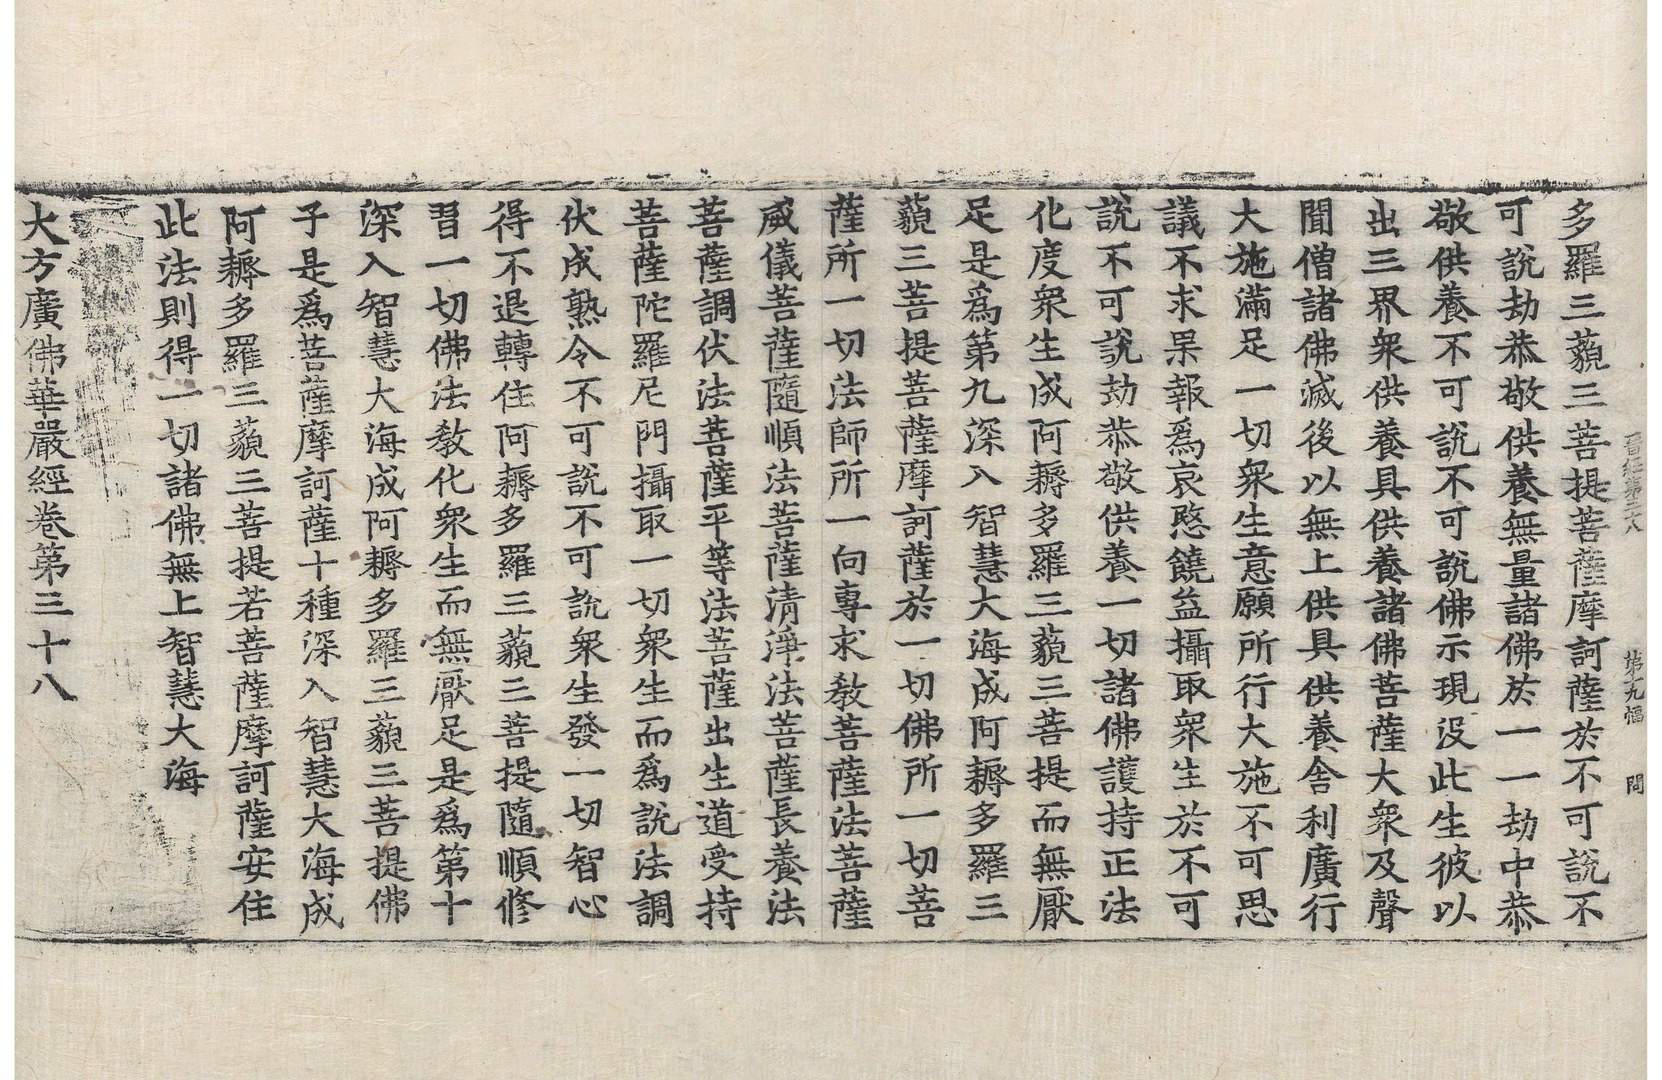 多羅三藐三菩提菩薩摩訶薩於不可說不
可說劫恭敬供養無量諸佛於一一劫中恭
敬供養不可說不可說佛示現没此生彼以
出三界衆供養具供養諸佛菩薩大衆及聲
聞僧諸佛滅後以無上供具供養舎利廣行
大施滿足一切衆生意願所行大施不可思
議不求果報爲哀愍饒益攝取衆生於不可
說不可說劫恭敬供養一切諸佛護持正法
化度衆生成阿耨多羅三藐三菩提而無厭
足是爲第九深入智慧大海成阿耨多羅三
藐三菩提菩薩摩訶薩於一切佛所一切菩
薩所一切法師所一向專求教菩薩法菩薩
威儀菩薩隨順法菩薩清淨法菩薩長養法
菩薩調伏法菩薩平等法菩薩出生道受持
菩薩陀羅尼門攝取一切衆生而爲說法調
伏成熟令不可說不可說衆生發一切智心
得不退轉住阿耨多羅三藐三菩提隨順修
習一切佛法教化衆生而無厭足是爲第十
深入智慧大海成阿耨多羅三藐三菩提佛
子是爲菩薩摩訶薩十種深入智慧大海成
阿耨多羅三藐三菩提若菩薩摩訶薩安住
此法則得一切諸佛無上智慧大海
大方廣佛華嚴經卷第三十八